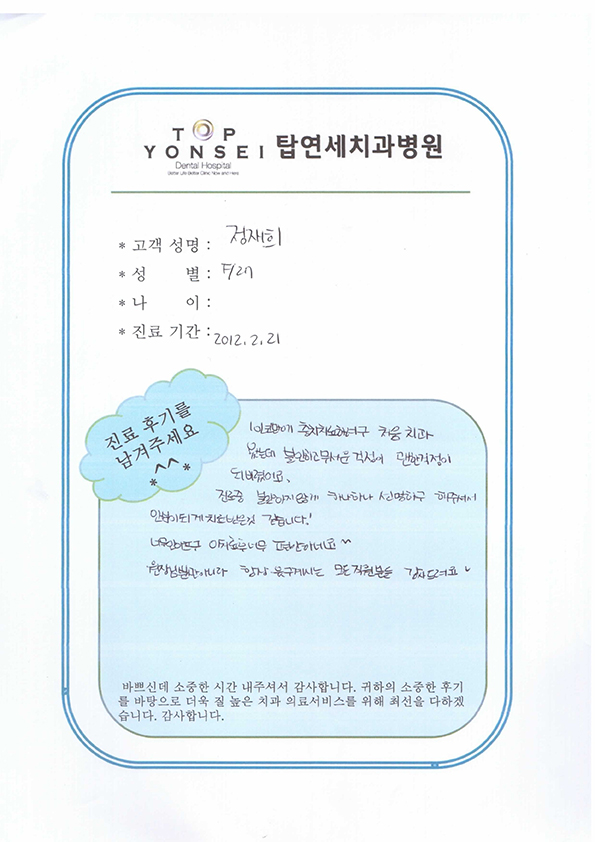 TOP
YONSEI 탑연세치과병원
Dental Hospital
Better Life Better Clinic Now and Here
* 고객 성명 : 정재희
* 성 별 : F/27
* 나 이 :
* 진료 기간 : 2012.2.21
진료 후기를
남겨주세요
*^^*
충치치료하려구 처음 치과
왔는데 불안하고 무서운 걱정이
되버렸어요.
진료중 불안하지 않게 하나하나 설명하구 해주셔서
안심이되게 치료받은것 같습니다!
너무 안아프구
원장님뿐만아니라 항상 웃구계시는 모든직원분들 감사드려요
바쁘신데 소중한 시간 내주셔서 감사합니다. 귀하의 소중한 후기
를 바탕으로 더욱 질 높은 치과 의료서비스를 위해 최선을 다하겠
습니다. 감사합니다.